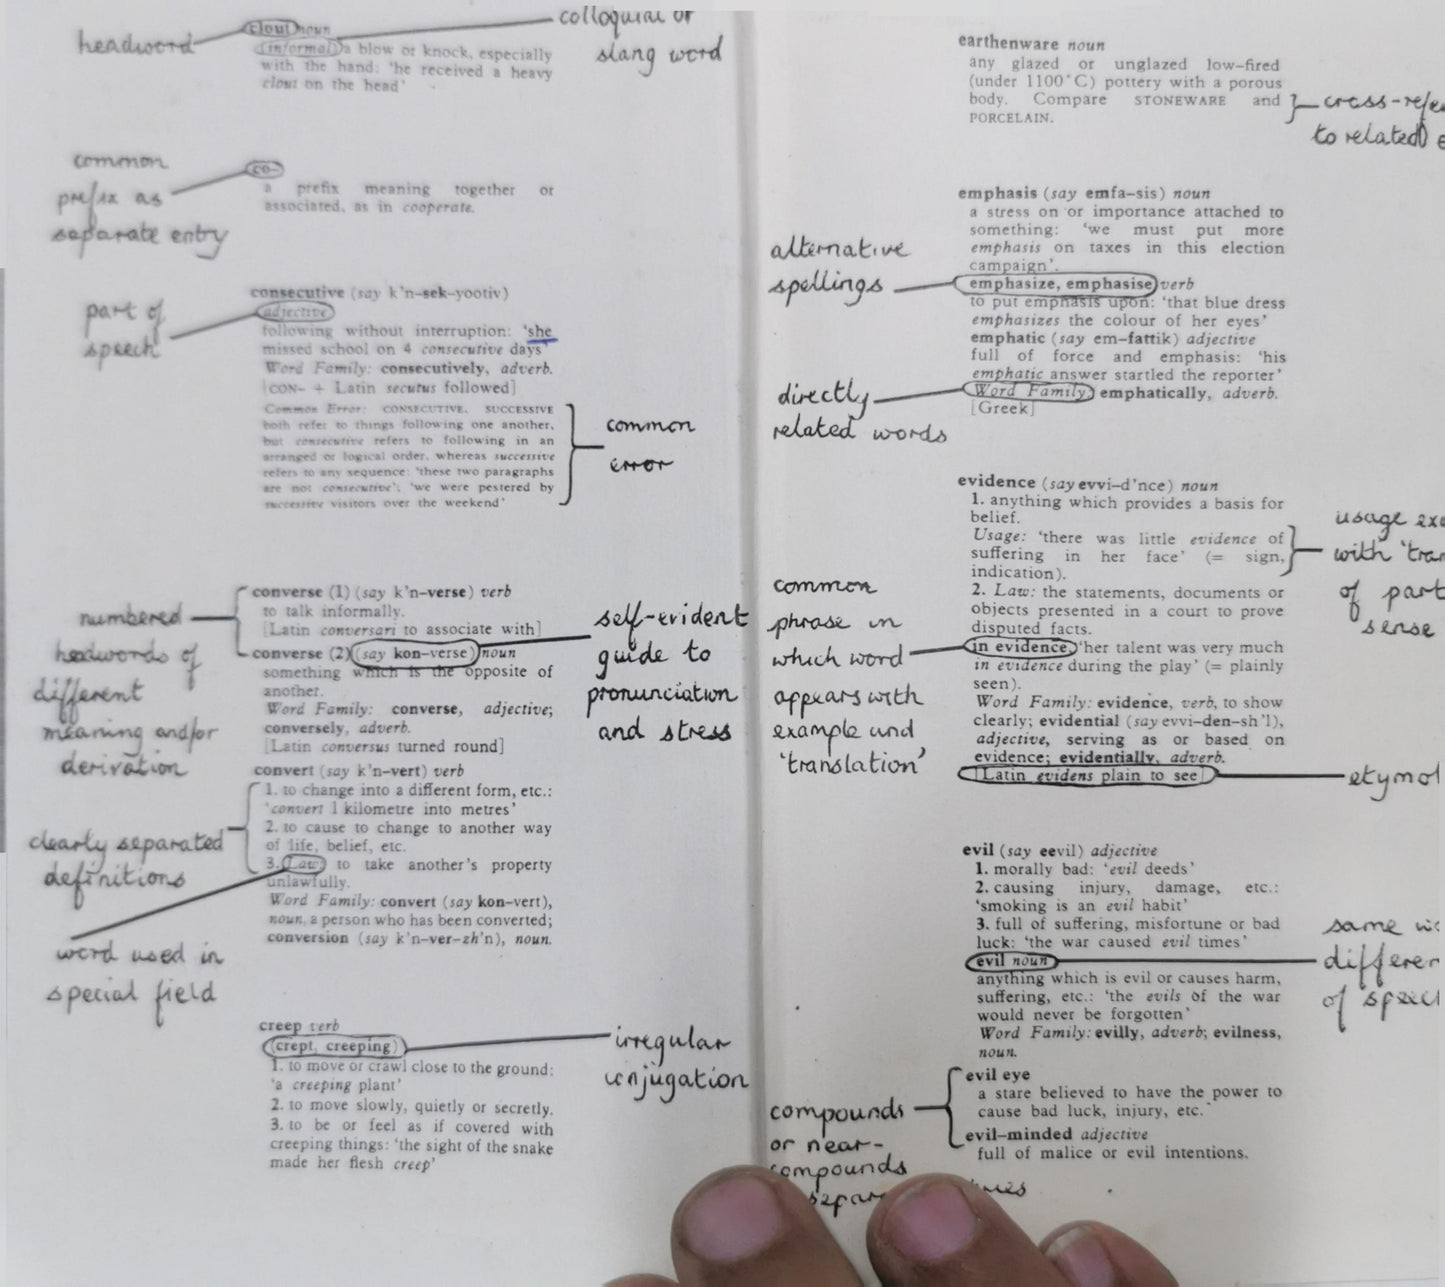 headword
clout noun
(informal) a blow or knock, especially
with the hand: 'he received a heavy
clout on the head'
colloquial or
slang word
common
prefix as
separate entry
co-
a prefix meaning together or
associated, as in cooperate.
part of
speech
consecutive (say k'n-sek-yootiv)
adjective
following without interruption: 'she
missed school on 4 consecutive days'
Word Family: consecutively, adverb.
[CON- + Latin secutus followed]
Common Error: CONSECUTIVE, SUCCESSIVE
both refer to things following one another,
but consecutive refers to following in an
arranged or logical order, whereas successive
refers to any sequence: 'these two paragraphs
are not consecutive'; 'we were pestered by
successive visitors over the weekend'
common
error
numbered
headwords of
different
meaning and/or
derivation
converse (1) (say k'n-verse) verb
to talk informally.
[Latin conversari to associate with]
converse (2) (say kon-verse) noun
something which is the opposite of
another.
Word Family: converse, adjective;
conversely, adverb.
[Latin conversus turned round]
self-evident
guide to
pronunciation
and stress
clearly separated
definitions
word used in
special field
convert (say k'n-vert) verb
1. to change into a different form, etc.:
'convert 1 kilometre into metres'
2. to cause to change to another way
of life, belief, etc.
3. Law: to take another's property
unlawfully.
Word Family: convert (say kon-vert),
noun, a person who has been converted;
conversion (say k'n-ver-zh'n), noun.
creep verb
(crept, creeping)
1. to move or crawl close to the ground:
'a creeping plant'
2. to move slowly, quietly or secretly.
3. to be or feel as if covered with
creeping things: 'the sight of the snake
made her flesh creep'
irregular
conjugation
earthenware noun
any glazed or unglazed low-fired
(under 1100°C) pottery with a porous
body. Compare STONEWARE and
PORCELAIN.
cross-refe
to related e
alternative
spellings
emphasis (say emfa-sis) noun
a stress on or importance attached to
something: 'we must put more
emphasis on taxes in this election
campaign'.
emphasize, emphasise verb
to put emphasis upon: 'that blue dress
emphasizes the colour of her eyes'
emphatic (say em-fattik) adjective
full of force and emphasis: 'his
emphatic answer startled the reporter'
Word Family: emphatically, adverb.
[Greek]
directly
related words
evidence (say evvi-d'nce) noun
1. anything which provides a basis for
belief.
Usage: 'there was little evidence of
suffering in her face' (= sign,
indication).
2. Law: the statements, documents or
objects presented in a court to prove
disputed facts.
in evidence, 'her talent was very much
in evidence during the play' (= plainly
seen).
Word Family: evidence, verb, to show
clearly; evidential (say evvi-den-sh'l),
adjective, serving as or based on
evidence; evidentially, adverb.
[Latin evidens plain to see]
usage exa
with 'tran
of part
sense
common
phrase in
which word
appears with
example and
'translation'
etymol
evil (say eevil) adjective
1. morally bad: 'evil deeds'
2. causing injury, damage, etc.:
'smoking is an evil habit'
3. full of suffering, misfortune or bad
luck: 'the war caused evil times'
evil noun
anything which is evil or causes harm,
suffering, etc.: 'the evils of the war
would never be forgotten'
Word Family: evilly, adverb; evilness,
noun.
same wo
differen
of speec
evil eye
a stare believed to have the power to
cause bad luck, injury, etc.
evil-minded adjective
full of malice or evil intentions.
compounds
or near-
compounds
separ